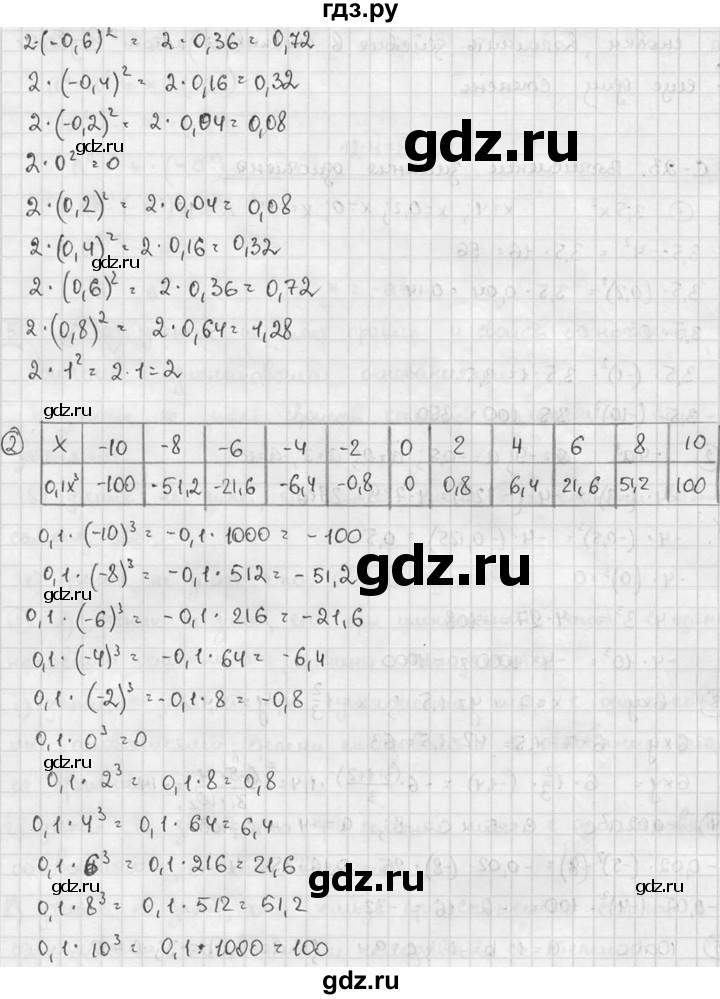 гдз.ру
2·(-0,6)² = 2·0,36=0,72
2·(-0,4)² = 2·0,16=0,32
2·(-0,2)² = 2·0,04=0,08
2·0²=0
2·(0,2)² = 2·0,04=0,08
2·(0,4)² = 2·0,16=0,32
2·(0,6)² = 2·0,36=0,72
2·(0,8)² = 2·0,64=1,28
2·1² = 2·1=2
gdz.ru
2 x -10 -8 -6 -4 -2 0 2 4 6 8 10
0,1x³ -100 -51,2 -21,6 -6,4 -0,8 0 0,8 6,4 21,6 51,2 100
0,1·(-10)³ = -0,1·1000 = -100
0,1·(-8)³ = -0,1·512 = -51,2
0,1·(-6)³ = -0,1·216 = -21,6
0,1·(-4)³ = -0,1·64 = -6,4
0,1·(-2)³ = -0,1·8 = -0,8
0,1·0³=0
0,1·2³ = 0,1·8=0,8
0,1·4³ = 0,1·64=6,4
0,1·6³ = 0,1·216=21,6
0,1·8³ = 0,1·512=51,2
0,1·10³ = 0,1·1000=100
gdz.ru